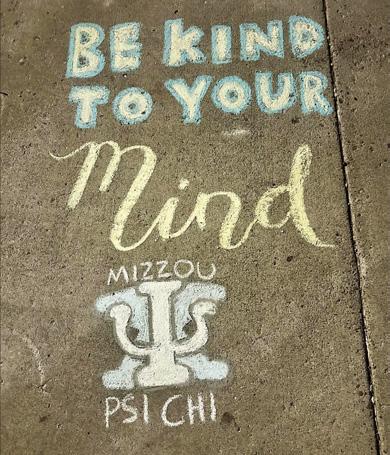 BE KIND
TO YOUR
Mind
MIZZOU
Ψ
PSI CHI